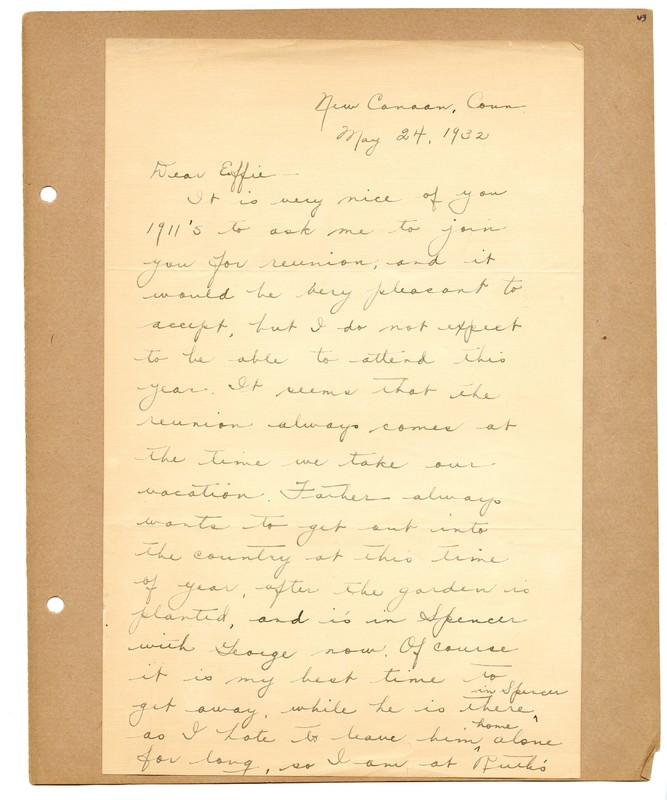 43
New Canaan, Conn.
May 24, 1932
Dear Effie—
It is very nice of you
1911's to ask me to join
you for reunion, and it
would be very pleasant to
accept, but I do not expect
to be able to attend this
year. It seems that the
reunion always comes at
the time we take our
vacation. Father always
wants to get out into
the country at this time
of year, after the garden is
planted, and is in Spencer
with George now. Of course
it is my best time to
get away, while he is there ^ in Spencer,
as I hate to leave him ^ home alone
for long, so I am at Ruth's